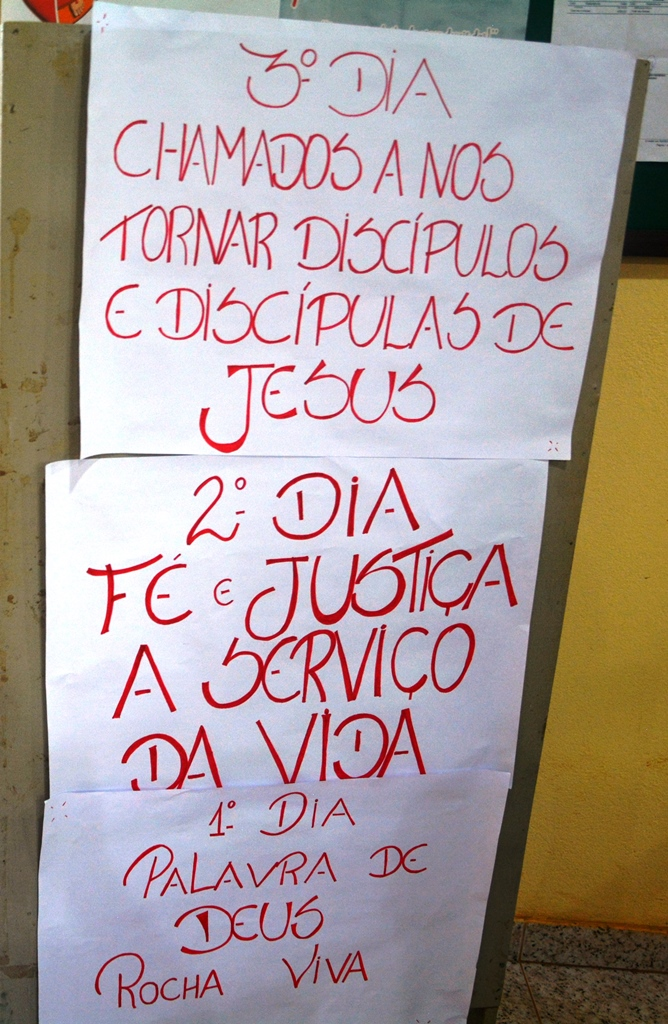 3º DIA
CHAMADOS A NOS
TORNAR DISCÍPULOS
E DISCÍPULAS DE
JESUS
2º DIA
FÉ E JUSTIÇA
A SERVIÇO
DA VIDA
1º DIA
PALAVRA DE
DEUS
ROCHA VIVA